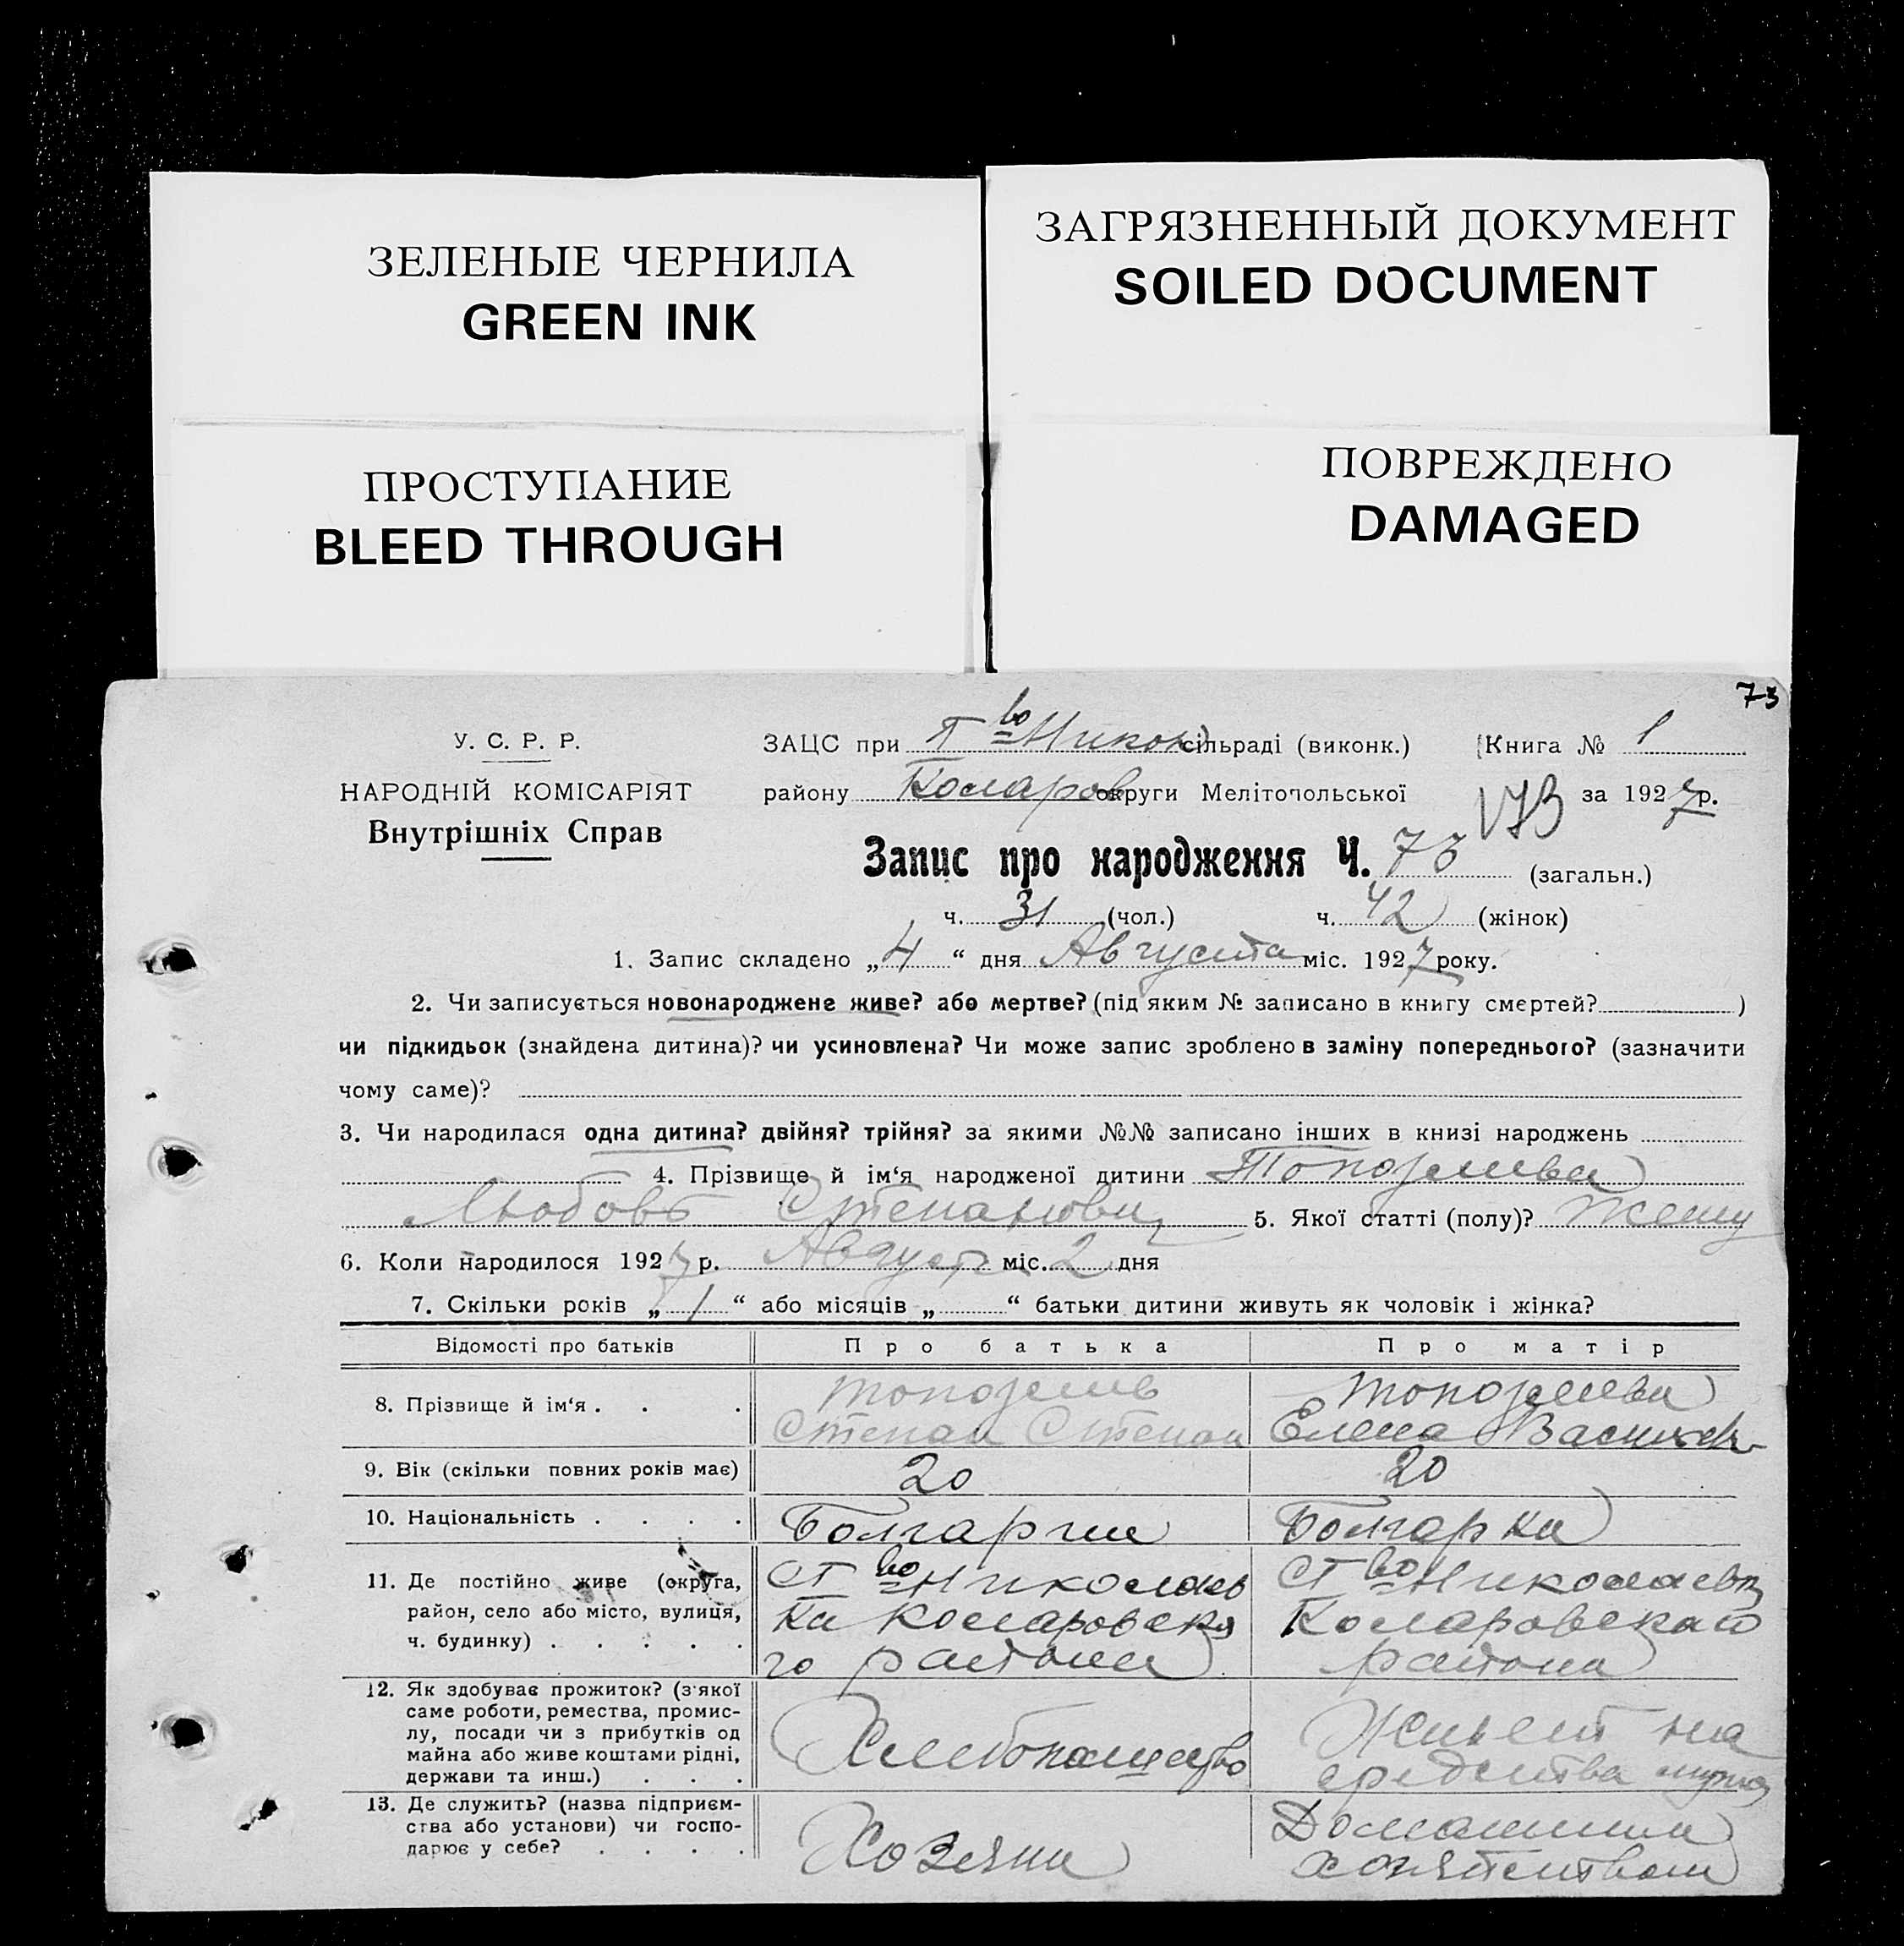 ЗЕЛЕНЫЕ ЧЕРНИЛА
GREEN INK
ЗАГРЯЗНЕННЫЙ ДОКУМЕНТ
SOILED DOCUMENT
ПРОСТУПАНИЕ
BLEED THROUGH
ПОВРЕЖДЕНО
DAMAGED
73
У. С. Р. Р.
НАРОДНІЙ КОМІСАРІЯТ
Внутрішніх Справ
ЗАЦС при сільраді (виконк.) Книга № 1
району Комаров округи Мелітопольської за 1927 р.
173
Запис про народження Ч. 73 (загальн.)
ч. 31 (чол.) ч. 42 (жінок)
1. Запис складено „ 4 “ дня Августа міс. 1927 року.
2. Чи записується новонароджене живе? або мертве? (під яким № записано в книгу смертей? )
чи підкидьок (знайдена дитина)? чи усиновлена? Чи може запис зроблено в заміну попереднього? (зазначити
чому саме)?
3. Чи народилася одна дитина? двійня? трійня? за якими №№ записано інших в книзі народжень
4. Прізвище й ім‘я народженої дитини Топозлиева
Любовь Степановн 5. Якої статті (полу)?
6. Коли народилося 1927 р. Августа міс. 2 дня
7. Скільки років „ 1 “ або місяців „ “ батьки дитини живуть як чоловік і жінка?
Відомості про батьків Про батька Про матір
8. Прізвище й ім‘я . . . Топозлиев Топозлиева
Степан Степан Елена Василев
9. Вік (скільки повних років має) 20 20
10. Національність . . . . Болгарин Болгарка
11. Де постійно живе (округа, Ст во Николаев Ст во Николаевк
район, село або місто, вулиця, ка Комаровска Комаровскаго
ч. будинку) . . . . . го района района
12. Як здобуває прожиток? (з якої
саме роботи, ремества, промис-
лу, посади чи з прибутків од Хлебопашество Живет на
майна або живе коштами рідні, средства мужа
держави та инш.) . . .
13. Де служить? (назва підприєм- Домашним
ства або установи) чи госпо- Хозяин хозяйством
дарює у себе? . . . .